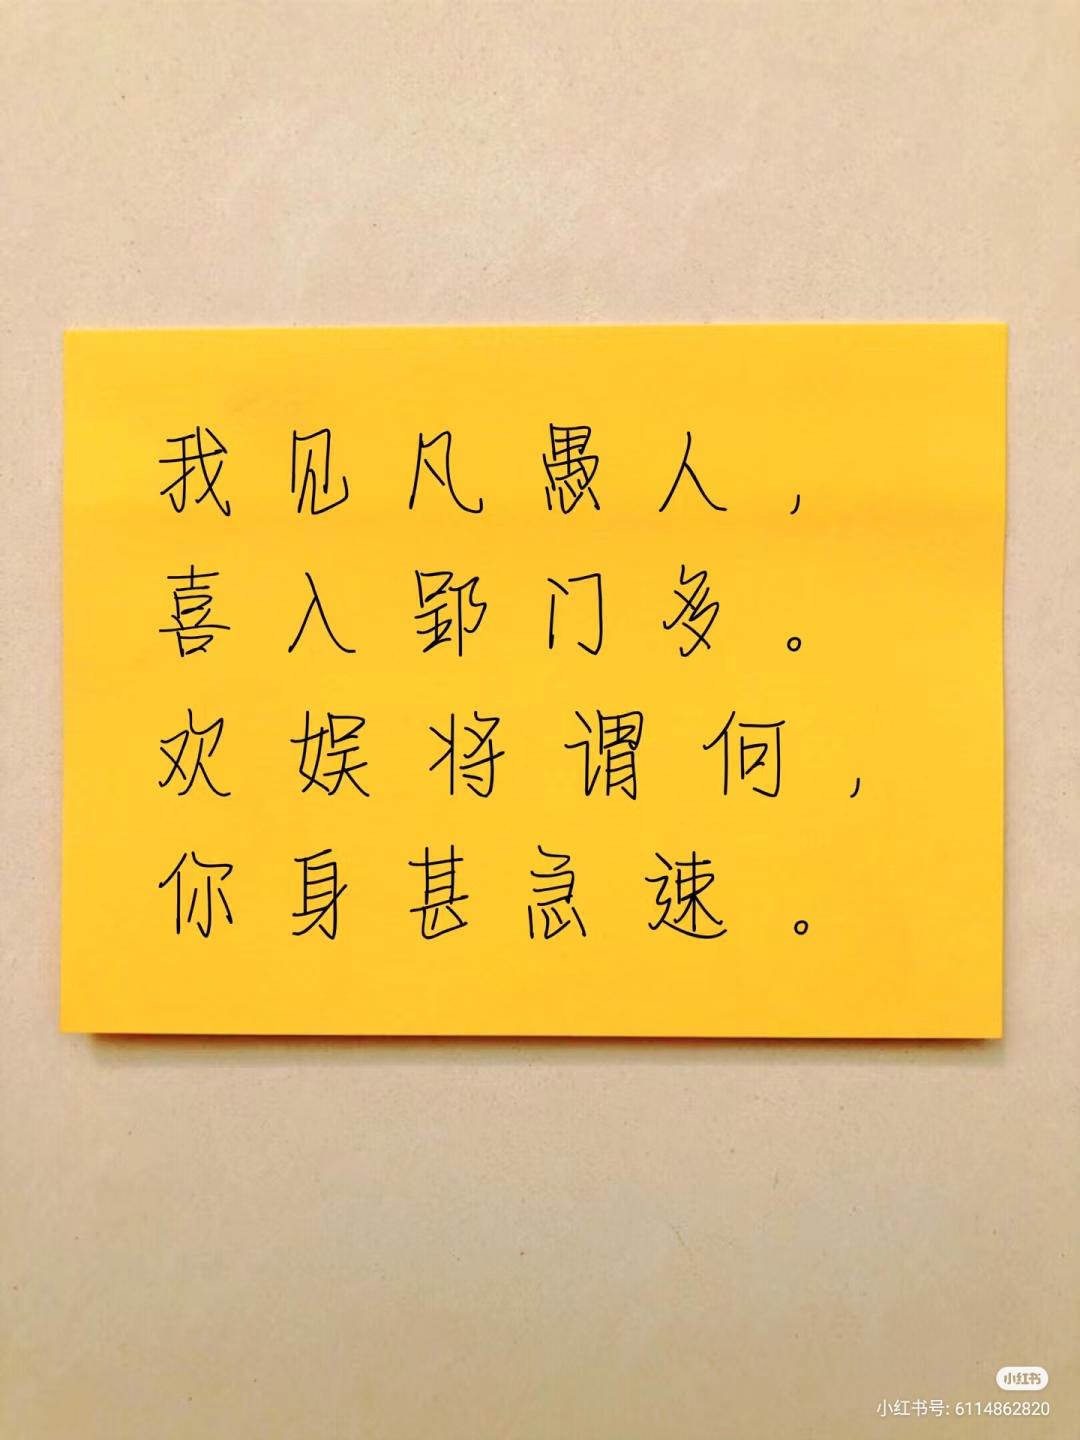 我见凡愚人，
喜入郢门多。
欢娱将谓何，
你身甚急速。
小红书
小红书号: 6114862820